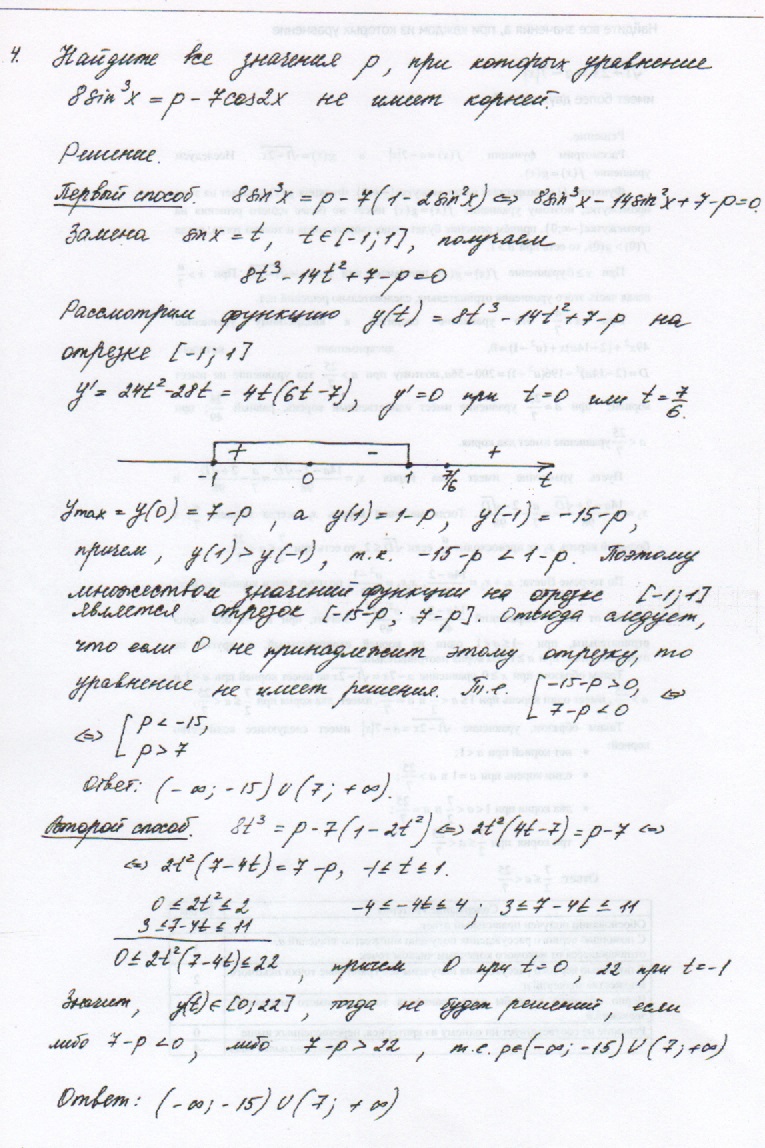 4. Найдите все значения p, при которых уравнение
8sin³x = p - 7cos2x не имеет корней.
Решение.
Первый способ. 8sin³x = p - 7(1 - 2sin²x) ⇔ 8sin³x - 14sin²x + 7 - p = 0.
Замена sinx = t, t∈[-1; 1], получаем
8t³ - 14t² + 7 - p = 0
Рассмотрим функцию y(t) = 8t³ - 14t² + 7 - p на
отрезке [-1; 1]
y' = 24t² - 28t = 4t(6t - 7), y' = 0 при t = 0 или t = 7/6.
+ - +
-1 0 1 7/6 t
y max = y(0) = 7 - p, а y(1) = 1 - p, y(-1) = -15 - p,
причем, y(1) > y(-1), т.к. -15 - p < 1 - p. Поэтому
множеством значений функции на орезке [-1; 1]
является отрезок [-15 - p; 7 - p]. Отсюда следует,
что если 0 не принадлежит этому отрезку, то
уравнение не имеет решения. Т.е. [ -15 - p > 0, 7 - p < 0 ⇔
⇔ [ p < -15, p > 7
Ответ: (-∞; -15) ∪ (7; +∞).
Второй способ. 8t³ = p - 7(1 - 2t²) ⇔ 2t²(4t - 7) = p - 7 ⇔
⇔ 2t²(7 - 4t) = 7 - p, -1 ≤ t ≤ 1.
0 ≤ 2t² ≤ 2 -4 ≤ -4t ≤ 4; 3 ≤ 7 - 4t ≤ 11
3 ≤ 7 - 4t ≤ 11
0 ≤ 2t²(7 - 4t) ≤ 22, причем 0 при t = 0, 22 при t = -1
Значит, y(t) ∈ [0; 22], тогда не будет решений, если
либо 7 - p < 0, либо 7 - p > 22, т.е. p∈(-∞; -15) ∪ (7; +∞)
Ответ: (-∞; -15) ∪ (7; +∞)